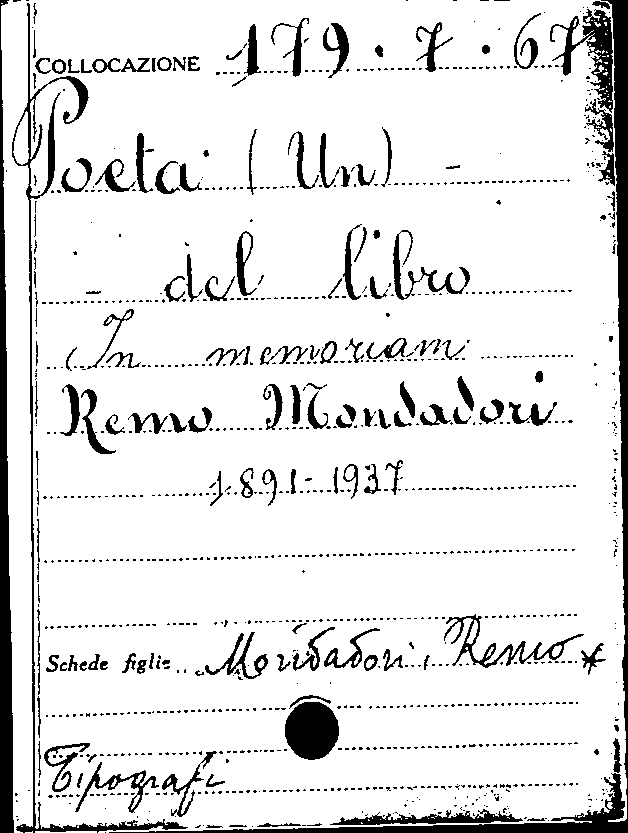 COLLOCAZIONE 179.7.67
Poeta (Un) -
- del libro
In memoriam
Remo Mondadori
1891-1937
Schede figlie Mondadori, Remo *
Tipografi